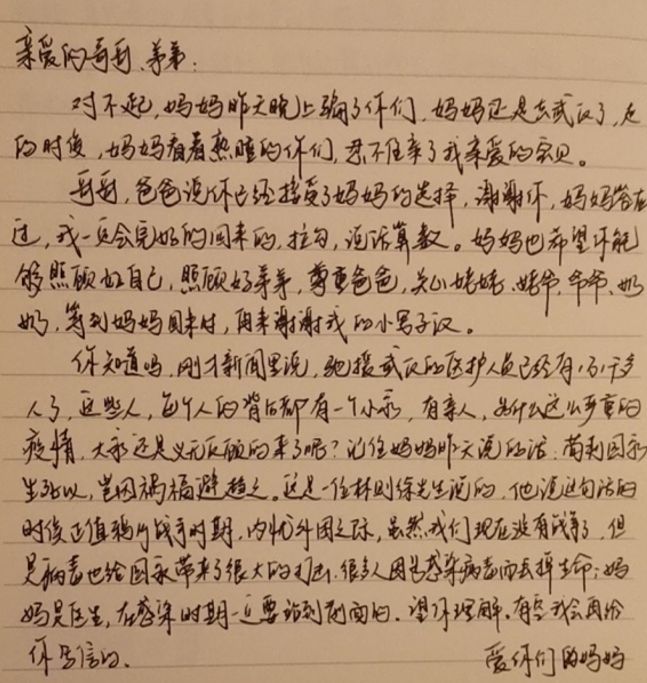 亲爱的哥哥、弟弟：
对不起，妈妈昨天晚上骗了你们，妈妈还是去武汉了，走
的时候，妈妈看着熟睡的你们，忍不住亲了我亲爱的宝贝。
哥哥，爸爸说你已经接受了妈妈的选择，谢谢你，妈妈答应
过，我一定会完好的回来的，拉勾，说话算数。妈妈也希望你能
够照顾好自己，照顾好弟弟，尊重爸爸，关心姥姥、姥爷、爷爷、奶
奶，等到妈妈回来时，再来谢谢我的小男子汉。
你知道吗，刚才新闻里说，驰援武汉的医护人员已经有1万1千多
人了，这些人，每个人的背后都有一个小家，有亲人，为什么这么严重的
疫情，大家还是义无反顾的来了呢？记住妈妈昨天说的话：苟利国家
生死以，岂因祸福避趋之。这是一位林则徐先生说的，他说这句话的
时候正值鸦片战争时期，内忧外困之际，虽然我们现在没有战争了，但
是病毒也给国家带来了很大的打击，很多人因为感染病毒而丢掉生命；妈
妈是医生，在感染时期一定要站到前面的。望你理解。有空我会再给
你写信的。
爱你们的妈妈